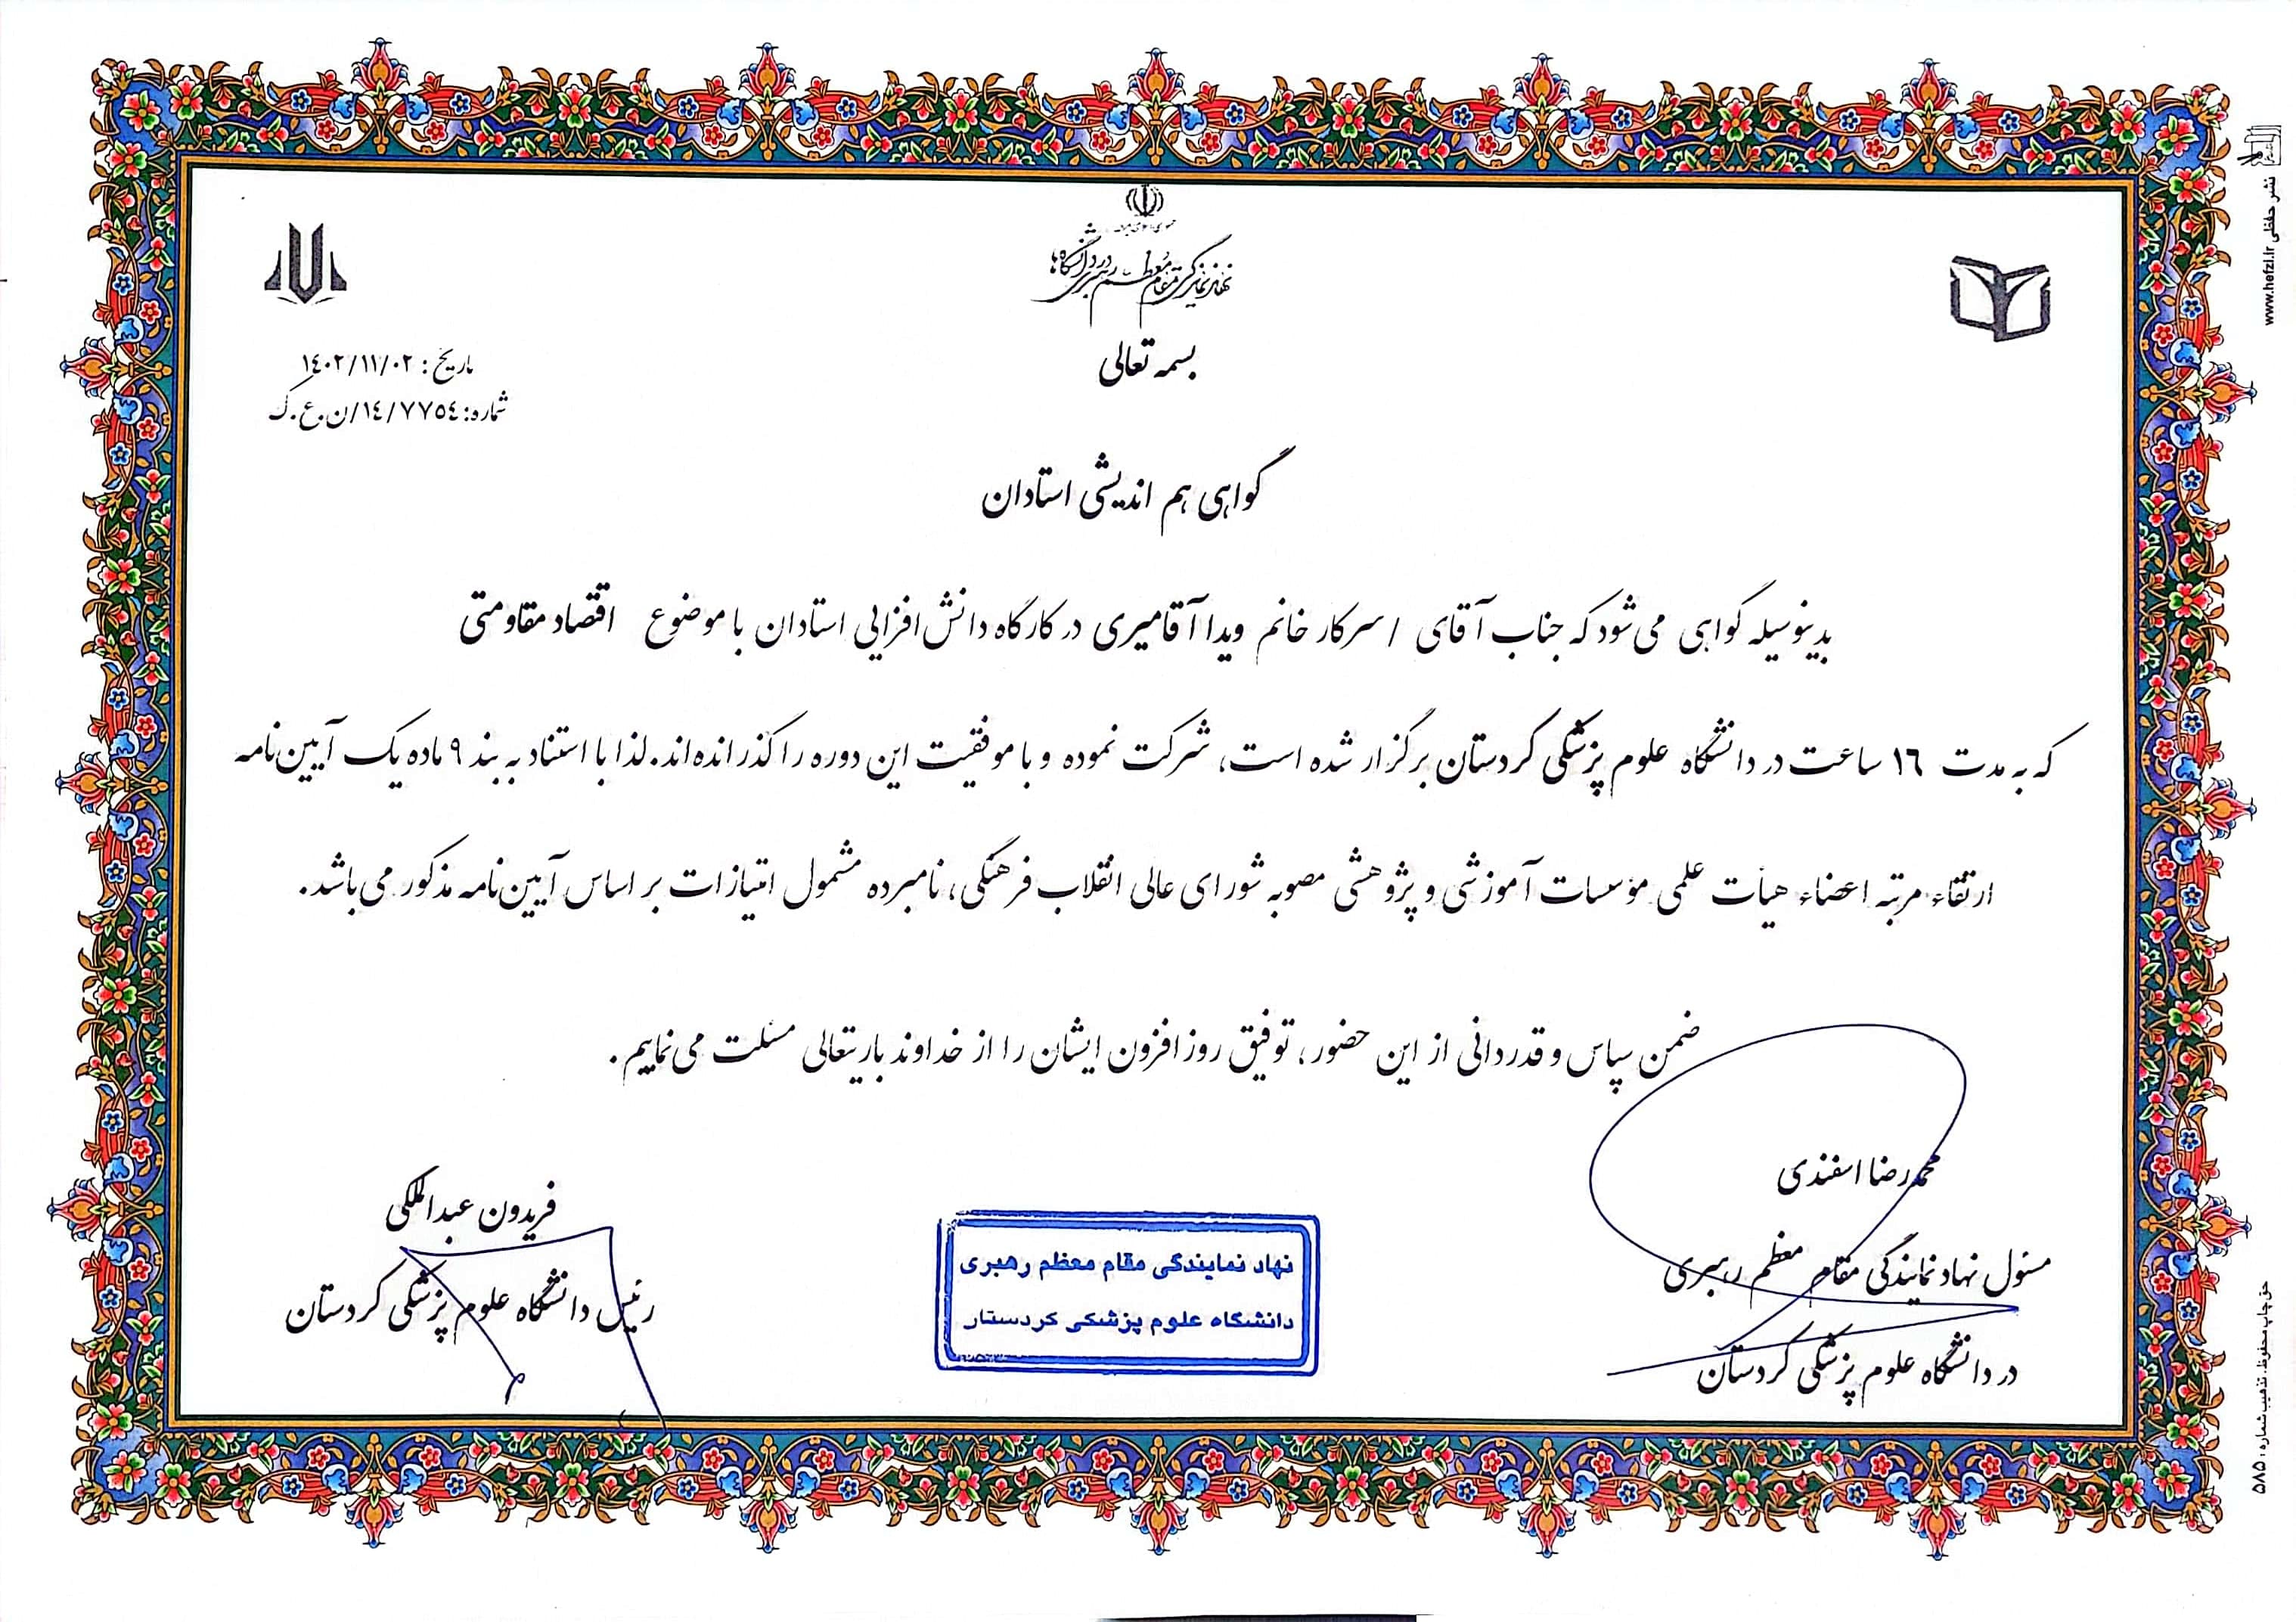 جمهوری اسلامی ایران
نهاد نمایندگی مقام معظم رهبری در دانشگاه‌ها
بسمه تعالی
تاریخ: ١٤٠٢/١١/٠٢
شماره: ١٤/٧٧٥٤/ن.ع.ک
گواهی هم اندیشی استادان
بدینوسیله گواهی می‌شود که جناب آقای / سرکار خانم ویدا آقامیری در کارگاه دانش‌افزایی استادان با موضوع اقتصاد مقاومتی
که به مدت ١٦ ساعت در دانشگاه علوم پزشکی کردستان برگزار شده است، شرکت نموده و با موفقیت این دوره را گذرانده‌اند. لذا با استناد به بند ٩ ماده یک آیین‌نامه
ارتقاء مرتبه اعضاء هیأت علمی مؤسسات آموزشی و پژوهشی مصوبه شورای عالی انقلاب فرهنگی، نامبرده مشمول امتیازات بر اساس آیین‌نامه مذکور می‌باشد.
ضمن سپاس و قدردانی از این حضور، توفیق روز افزون ایشان را از خداوند باریتعالی مسئلت می‌نماییم.
محمدرضا اسفندی
مسئول نهاد نمایندگی مقام معظم رهبری
در دانشگاه علوم پزشکی کردستان
نهاد نمایندگی مقام معظم رهبری
دانشگاه علوم پزشکی کردستان
فریدون عبدالملکی
رئیس دانشگاه علوم پزشکی کردستان
نشر حفظی www.hefzi.ir
حق چاپ محفوظ. تذهیب شماره: ۵۸۵